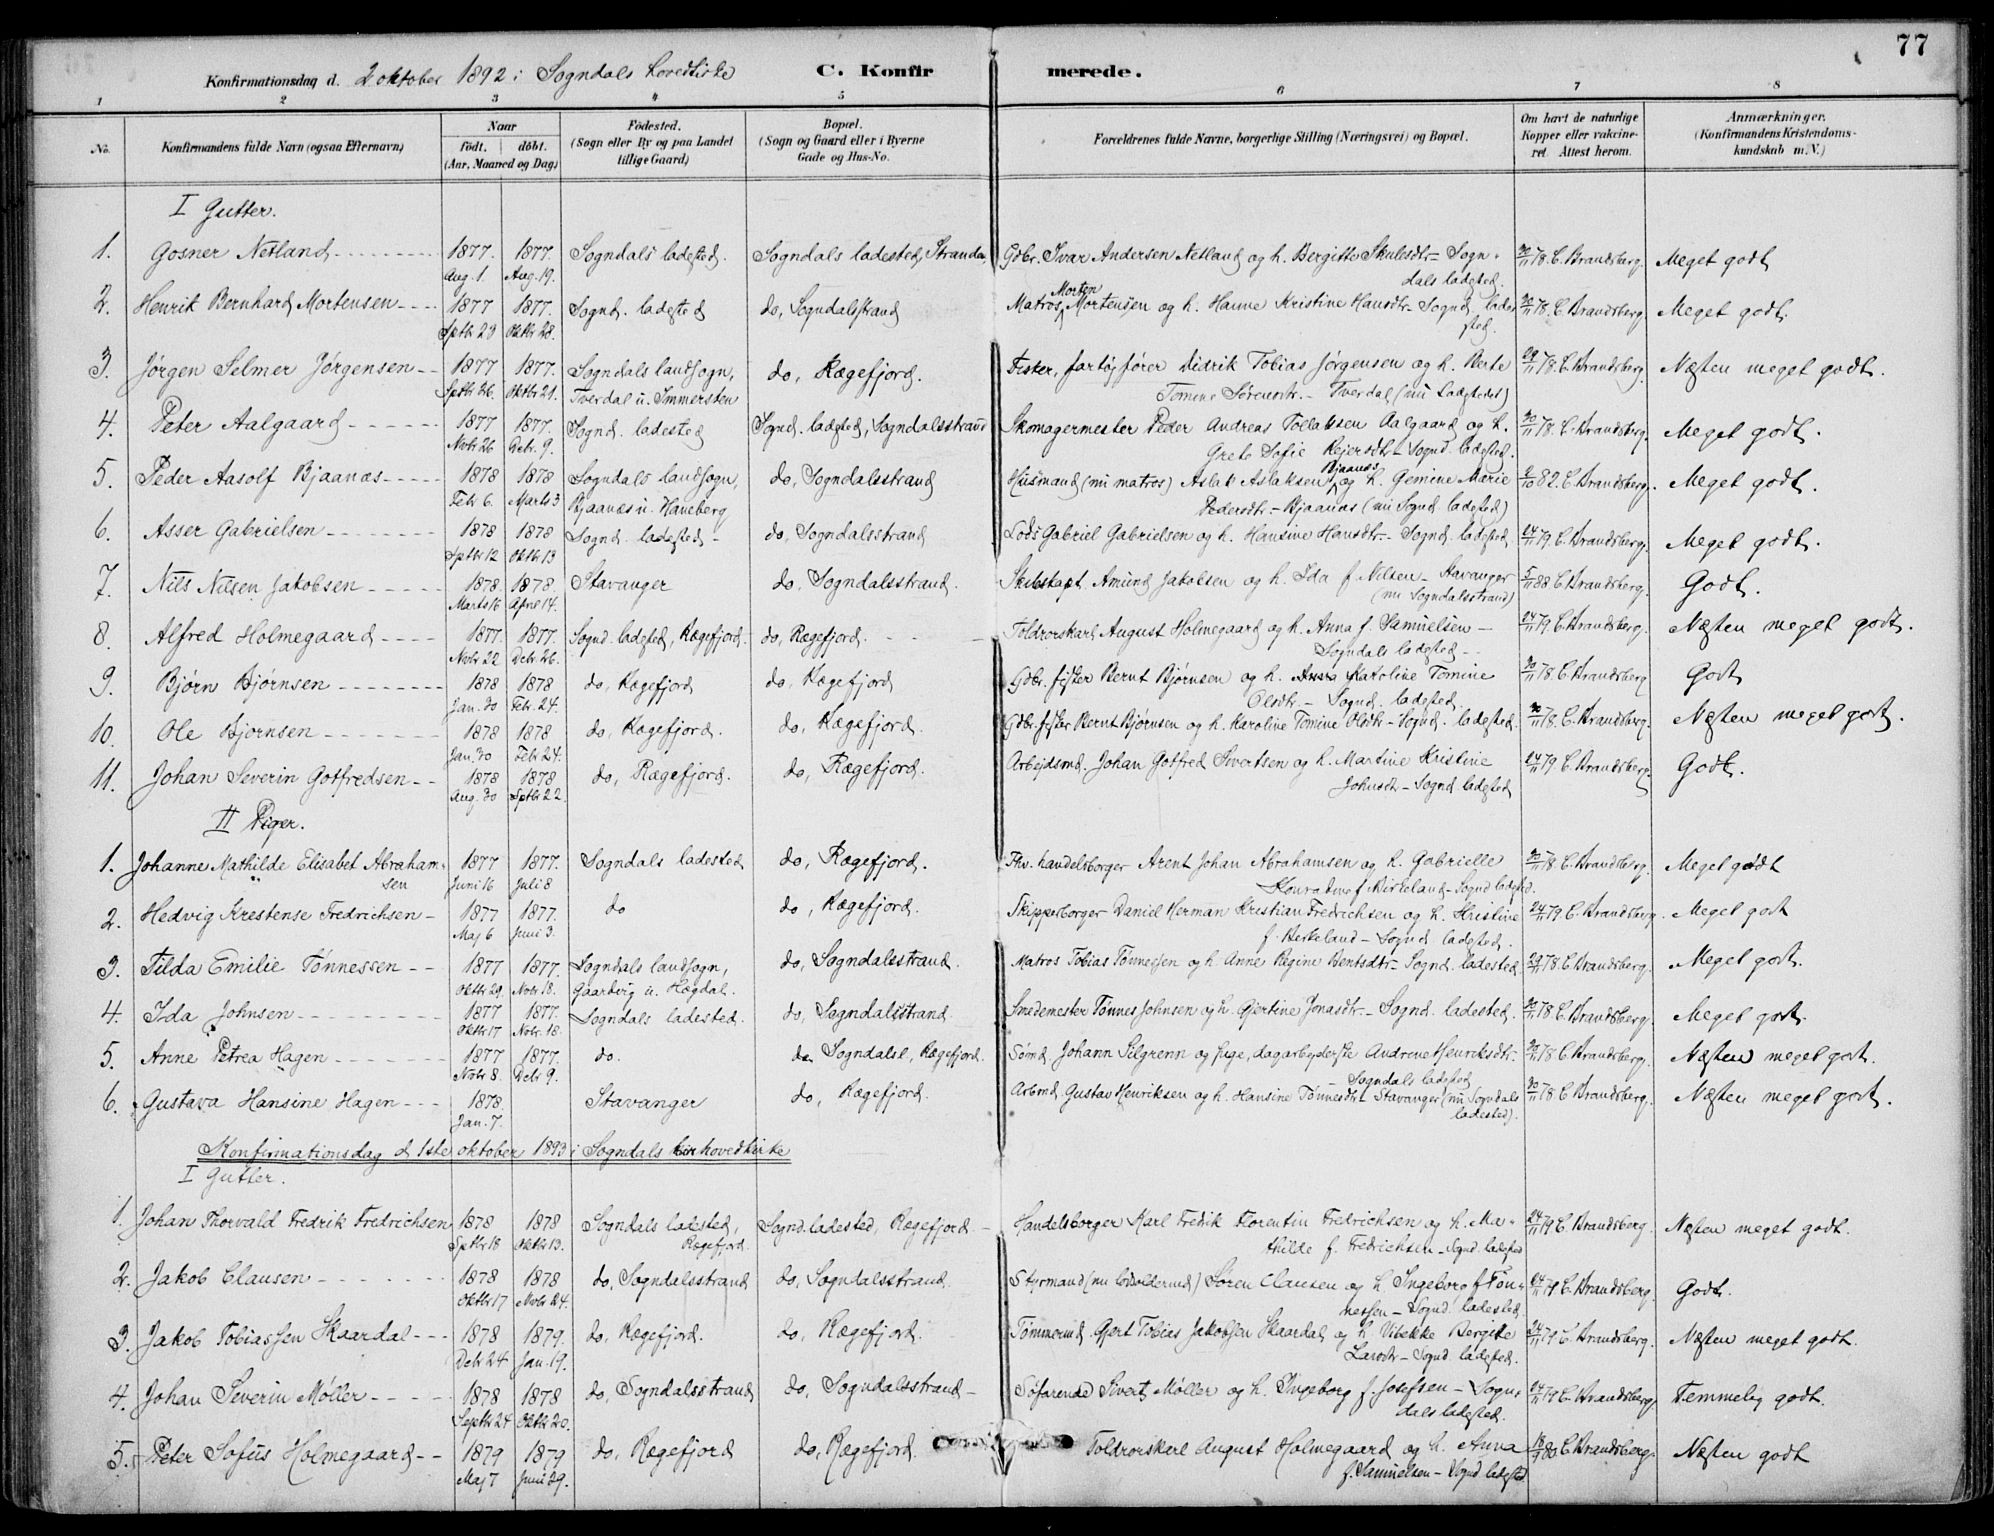 77
Konfirmationsdag d. 2 oktober 1892 i Sogndals hovedkirke C. Konfir merede.
1 2 3 4 5 6 7 8
No. Konfirmandens fulde Navn (ogsaa Efternavn) Naar födt. döbt. (Aar, Maaned og Dag) Födested. (Sogn eller By og paa Landet tillige Gaard) Bopæl. (Sogn og Gaard eller i Byerne Gade og Hus-No. Forældrenes fulde Navne, borgerlige Stilling (Næringsvei) og Bopæl. Om havt de naturlige Kopper eller vakcineret. Attest herom. Anmærkninger. (Konfirmandens Kristendomskundskab m. V.)
I Gutter.
1. Gosner Netland 1877. 1877. Sogndals ladested. Sogndals ladested, Stranden Gdbr. Ivar Andersen Netland og h. Bergitte Skulesdtr - Sogn- 30/11 78. C. Brandsberg. Meget godt
Aug. 1. Aug. 19. dals ladested.
2. Henrik Bernhard Mortensen 1877 1877. Sognd. ladested do, Sogndalstrand Matros Morten Mortensen og h. Hanne Kristine Hansdtr - Sognd. lade- 30/11 78. C. Brandsberg. Meget godt.
Sptbr 23 Oktbr 28. sted.
3. Jørgen Selmer Jørgensen 1877 1877. Sogndals landsogn, do, Rægefjord. Fisker, fartøjfører Didrik Tobias Jørgensen og h. Berte 29/11 78. C. Brandsberg. Næsten meget godt.
Sptbr 26. Oktbr 21. Tverdal u. Immersten Tomine Sørensdtr. - Tverdal (nu Ladestedet)
4. Peter Aalgaard 1877 1877. Sognd. ladested Sognd. ladested, Sogndalsstrand Skomagermester Peder Andreas Tollaksen Aalgaard og h. 30/11 78. C. Brandsberg. Meget godt.
Novbr 26 Decbr. 9. Grete Sofie Rejersdtr - Sognd. ladested.
5. Peder Aasolf Bjaanæs 1878 1878 Sogndals landsogn, do, Sogndalsstrand Husmand (nu matros) Aslak Aslaksen Bjaanæs og h. Gemine Marie 2/10 82. C. Brandsberg. Meget godt.
Febr 6. Marts 3 Bjaanæs u. Haneberg Pedersdtr. - Bjaanæs (nu Sognd. ladested)
6. Asser Gabrielsen 1878 1878 Sognd. ladested - do, Sogndalsstrand Lods Gabriel Gabrielsen og h. Hansine Hansdtr - Sognd. ladested 24/11 79. C. Brandsberg. Meget godt.
Sptbr 12 Oktbr 13
7. Nils Nilsen Jakobsen 1878. 1878 Stavanger do, Sogndalsstrand. Skibskapt. Amund Jakobsen og h. Ida f. Nilsen - Stavanger 5/11 88 C. Brandsberg. Godt.
Marts 16 April 14. (nu Sogndalsstrand)
8. Alfred Holmegaard 1877. 1877. Sognd. ladested, Rægefjord. do, Rægefjord. Toldrorskarl August Holmegaard og h. Anna f. Samuelsen - 24/11 79. C. Brandsberg. Næsten meget godt.
Novbr 22 Decbr. 26. Sogndals ladested -
9. Bjørn Bjørnsen 1878 1878 do, Rægefjord do, Rægefjord Gdbr. fisker Bernt Bjørnsen og h. Karoline Tomine 30/11 78. C. Brandsberg Godt
Jan. 30 Febr. 24. Olsdtr. - Sognd. ladested.
10. Ole Bjørnsen 1878 1878 do, Rægefjord. do, Rægefjord. Gdbr. fisker Bernt Bjørnsen og h. Karoline Tomine Olsdtr - Sognd. ladested. 30/11 78. C. Brandsberg. Næsten meget godt.
Jan. 30 Febr 24.
11. Johan Severin Gotfredsen 1878 1878 do, Rægefjord. do, Rægefjord. Arbejdsmd. Johan Gotfred Sivertsen og h. Martine Kristine 24/11 79 C. Brandsberg. Godt.
Aug. 30 Sptbr 22. Johnsdtr - Sognd. ladested
II Piger.
1. Johanne Mathilde Elisabet Abraham- 1877 1877. Sogndals ladested do, Rægefjord. Fhv. handelsborger Arent Johan Abrahamsen og h. Gabrielle 30/11 78 C. Brandsberg. Meget godt
sen Juni 16 Juli 8 Konradine f. Birkeland - Sognd ladested.
2. Hedvig Krestense Fredrichsen 1877 1877. do do, Rægefjord. Skipperborger Daniel Herman Kristian Fredrichsen og h. Kristine 24/11 79 C. Brandsberg. Meget godt
Maj 6 Juni 3. f. Berkeland - Sognd. ladested.
3. Tilda Emilie Tønnessen 1877 1877. Sogndals landsogn, do, Sogndalsstrand. Matros Tobias Tønnessen og h. Anne Regine Berntsdtr - Sognd. ladested. 29/11 78. C. Brandsberg. Meget godt.
Oktbr 29. Novbr 18. Gaardvig u. Hægdal.
4. Ida Johnsen 1877 1877. Sogndals ladested. do, Sogndalsstrand. Smedemester Tønnes Johnsen og h. Gjertine Jonasdtr - Sognd. ladested. 30/11 78 C. Brandsberg. Meget godt.
Oktbr 17 Novbr. 18.
5. Anne Petrea Hagen 1877 1877. do. do Sogndalsl., Rægefjord. Sømd. Johann Silgrenn og pige, dagarbejderske Andrine Henriksdtr. 30/11 78 C. Brandsberg. Næsten meget godt.
Novbr 8. Decbr 9. Sogndals ladested
6. Gustava Hansine Hagen 1878. Stavanger do, Rægefjord. Arbmd. Gustav Henriksen og h. Hansine Tønnesdtr - Stavanger (nu Sogndals 30/11 78. C Brandsberg. Næsten meget godt.
Jan. 7. ladested).
Konfirmationsdag d. 1ste oktober 1893 i Sogndals hovedkirke
I Gutter.
1. Johan Thorvald Fredrik Fredrichsen 1878 1878 Sogndals ladested, Sognd. ladested, Rægefjord - Handelsborger Karl Fredik Florentin Fredrichsen og h. Ma- 24/11 79 C. Brandsberg. Næsten meget godt.
Sptbr 18 Oktbr 13. Rægefjord. thilde f. Fredrichsen - Sognd ladested
2. Jakob Clausen 1878 1878 do, Sogndalsstrand do, Sogndalsstrand. Styrmand Søren Clausen og h. Ingeborg f. Tøn- 24/11 79 C. Brandsberg. Godt.
Oktbr 17 Novbr 24. nessen - Sognd. ladested.
3. Jakob Tobiassen Skaardal 1878 1879. do, Rægefjord. do, Rægefjord. Tømmermd. Gjert Tobias Jakobsen Skaardal og h. Vibekke Bergitte 24/11 79 C. Brandsberg. Næsten meget godt.
Decbr 24 Jan. 19. Larsdtr - Sognd. ladested.
4. Johan Severin Møller 1878 1878 do, Sogndalsstrand do, Sogndalsstrand - Søfarende Sivert Møller og h. Ingeborg f. Josefsen - Sogn- 24/11 79 C. Brandsberg. Temmelig godt.
Septbr 24 Oktbr 20. dals ladested.
5. Peter Sofus Holmegaard 1879 1879 do, Rægefjord do, Rægefjord. Toldrorskarl August Holmegaard og h. Anna 80 C. Brandsberg. Næsten godt
Maj 7 Juni 29. f. Samuelsen - Sognd ladested